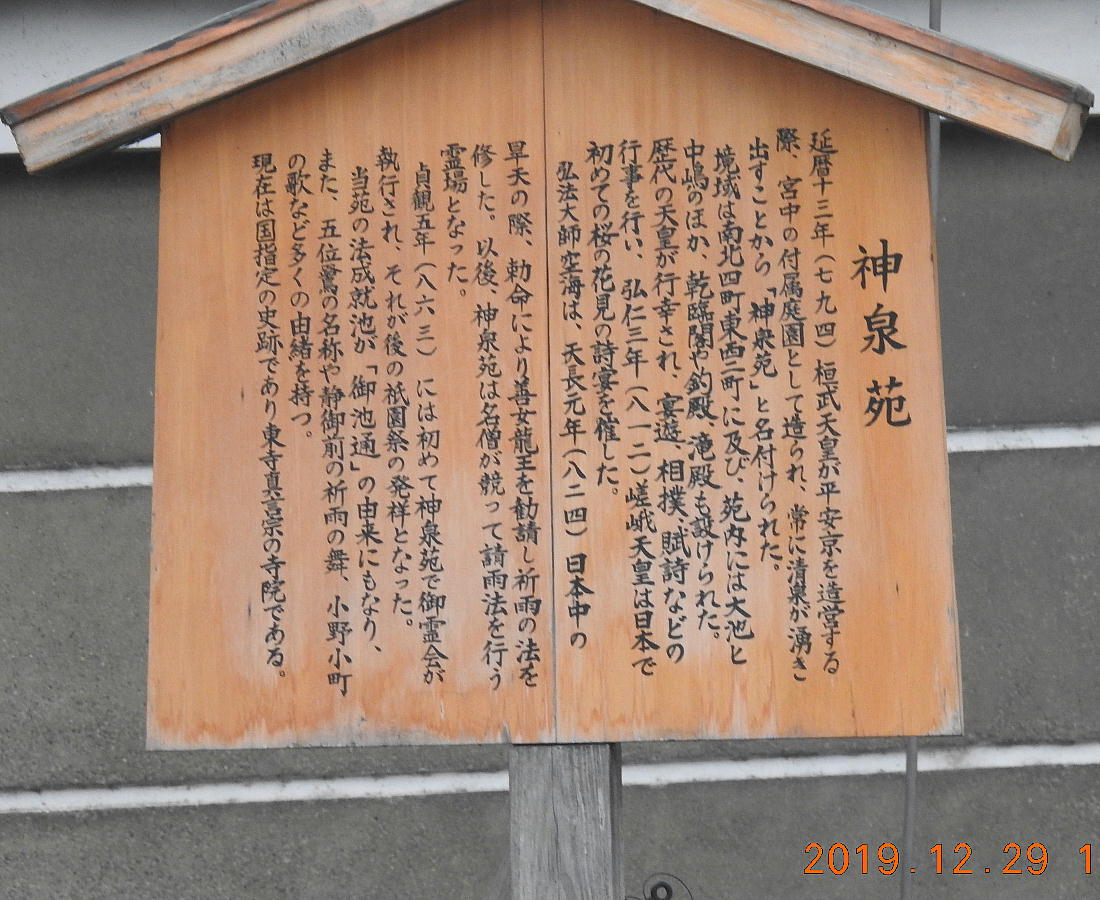 神泉苑
延暦十三年（七九四）桓武天皇が平安京を造営する
際、宮中の付属庭園として造られ、常に清泉が湧き
出すことから「神泉苑」と名付けられた。
境域は南北四町東西二町に及び、苑内には大池と
中嶋のほか、乾臨閣や釣殿、滝殿も設けられた。
歴代の天皇が行幸され、宴遊、相撲、賦詩などの
行事を行い、弘仁三年（八一二）嵯峨天皇は日本で
初めての桜の花見の詩宴を催した。
弘法大師空海は、天長元年（八二四）日本中の
旱天の際、勅命により善女龍王を勧請し祈雨の法を
修した。以後、神泉苑は名僧が競って請雨法を行う
霊場となった。
貞観五年（八六三）には初めて神泉苑で御霊会が
執行され、それが後の祇園祭の発祥となった。
当苑の法成就池が「御池通」の由来にもなり、
また、五位鷺の名称や静御前の祈雨の舞、小野小町
の歌など多くの由緒を持つ。
現在は国指定の史跡であり東寺真言宗の寺院である。
2019.12.29 1